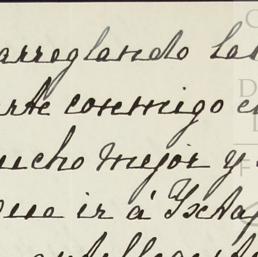 arreglando las
arte conmigo e
mucho mejor y
que ir á Ixtap